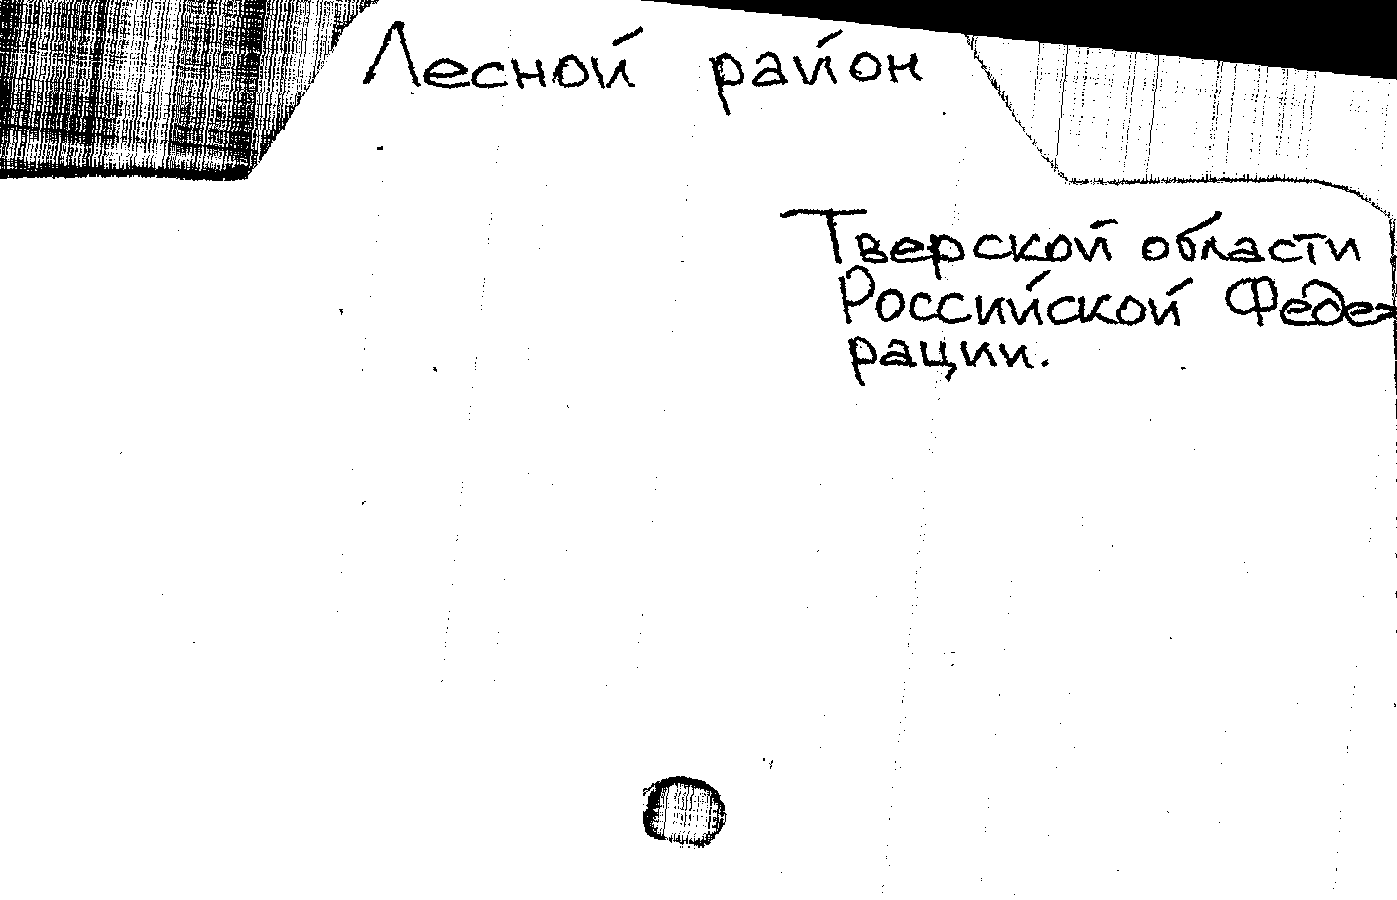 Лесной район
Тверской области
Российской Феде-
рации.